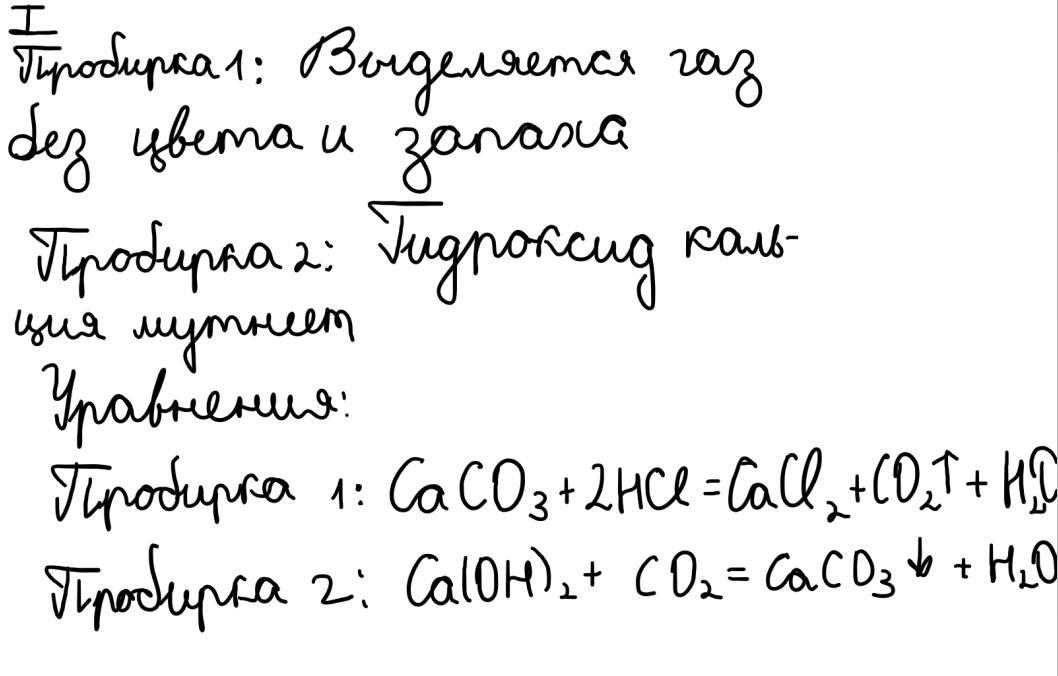 I
Пробирка 1: Выделяется газ
без цвета и запаха
Пробирка 2: Гидроксид каль-
ция мутнеет
Уравнения:
Пробирка 1: CaCO₃ + 2HCl = CaCl₂ + CO₂↑ + H₂O
Пробирка 2: Ca(OH)₂ + CO₂ = CaCO₃↓ + H₂O